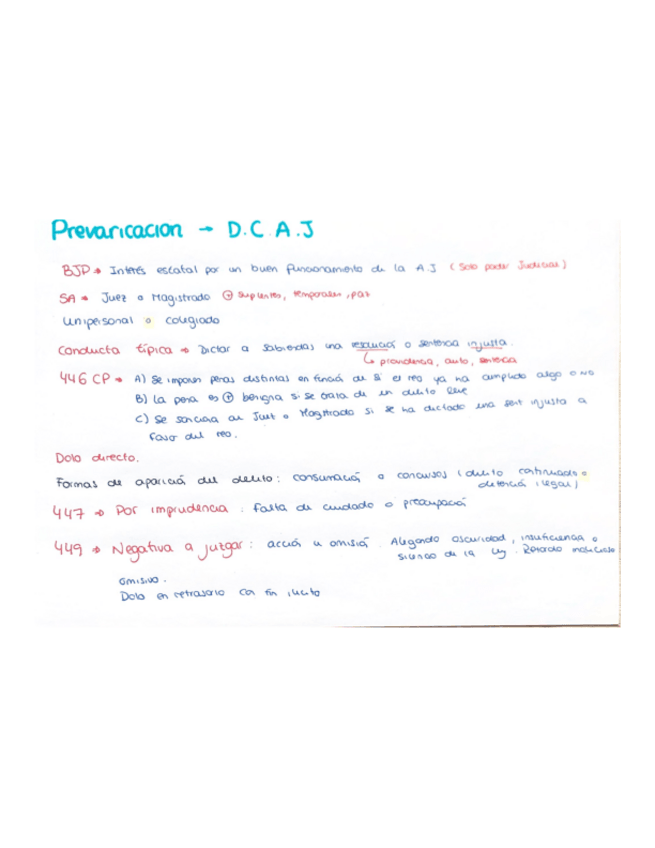 Prevaricacion → D.C.A.J
BJP → Interés estatal por un buen funcionamiento de la A.J (Solo poder Judicial)
SA → Juez o Magistrado ⊕ suplentes, temporales, paz
Unipersonal o colegiado
Conducta típica → Dictar a sabiendas una resolución o sentencia injusta.
↳ providencia, auto, sentencia
446 CP → A) Se imponen penas distintas en función de si el reo ya ha cumplido algo o no
B) La pena es ⊕ benigna si se trata de un delito leve
C) Se sanciona al Juez o Magistrado si se ha dictado una sent injusta a
favor del reo.
Dolo directo.
Formas de aparición del delito: consumación o concursos (delito continuado o
detención ilegal)
447 → Por imprudencia : falta de cuidado o preocupación
449 → Negativa a juzgar: acción u omisión. Alegando oscuridad, insuficiencia o
silencio de la ley. Retardo malicioso
omisivo.
Dolo en retrasarlo con fin ilícito